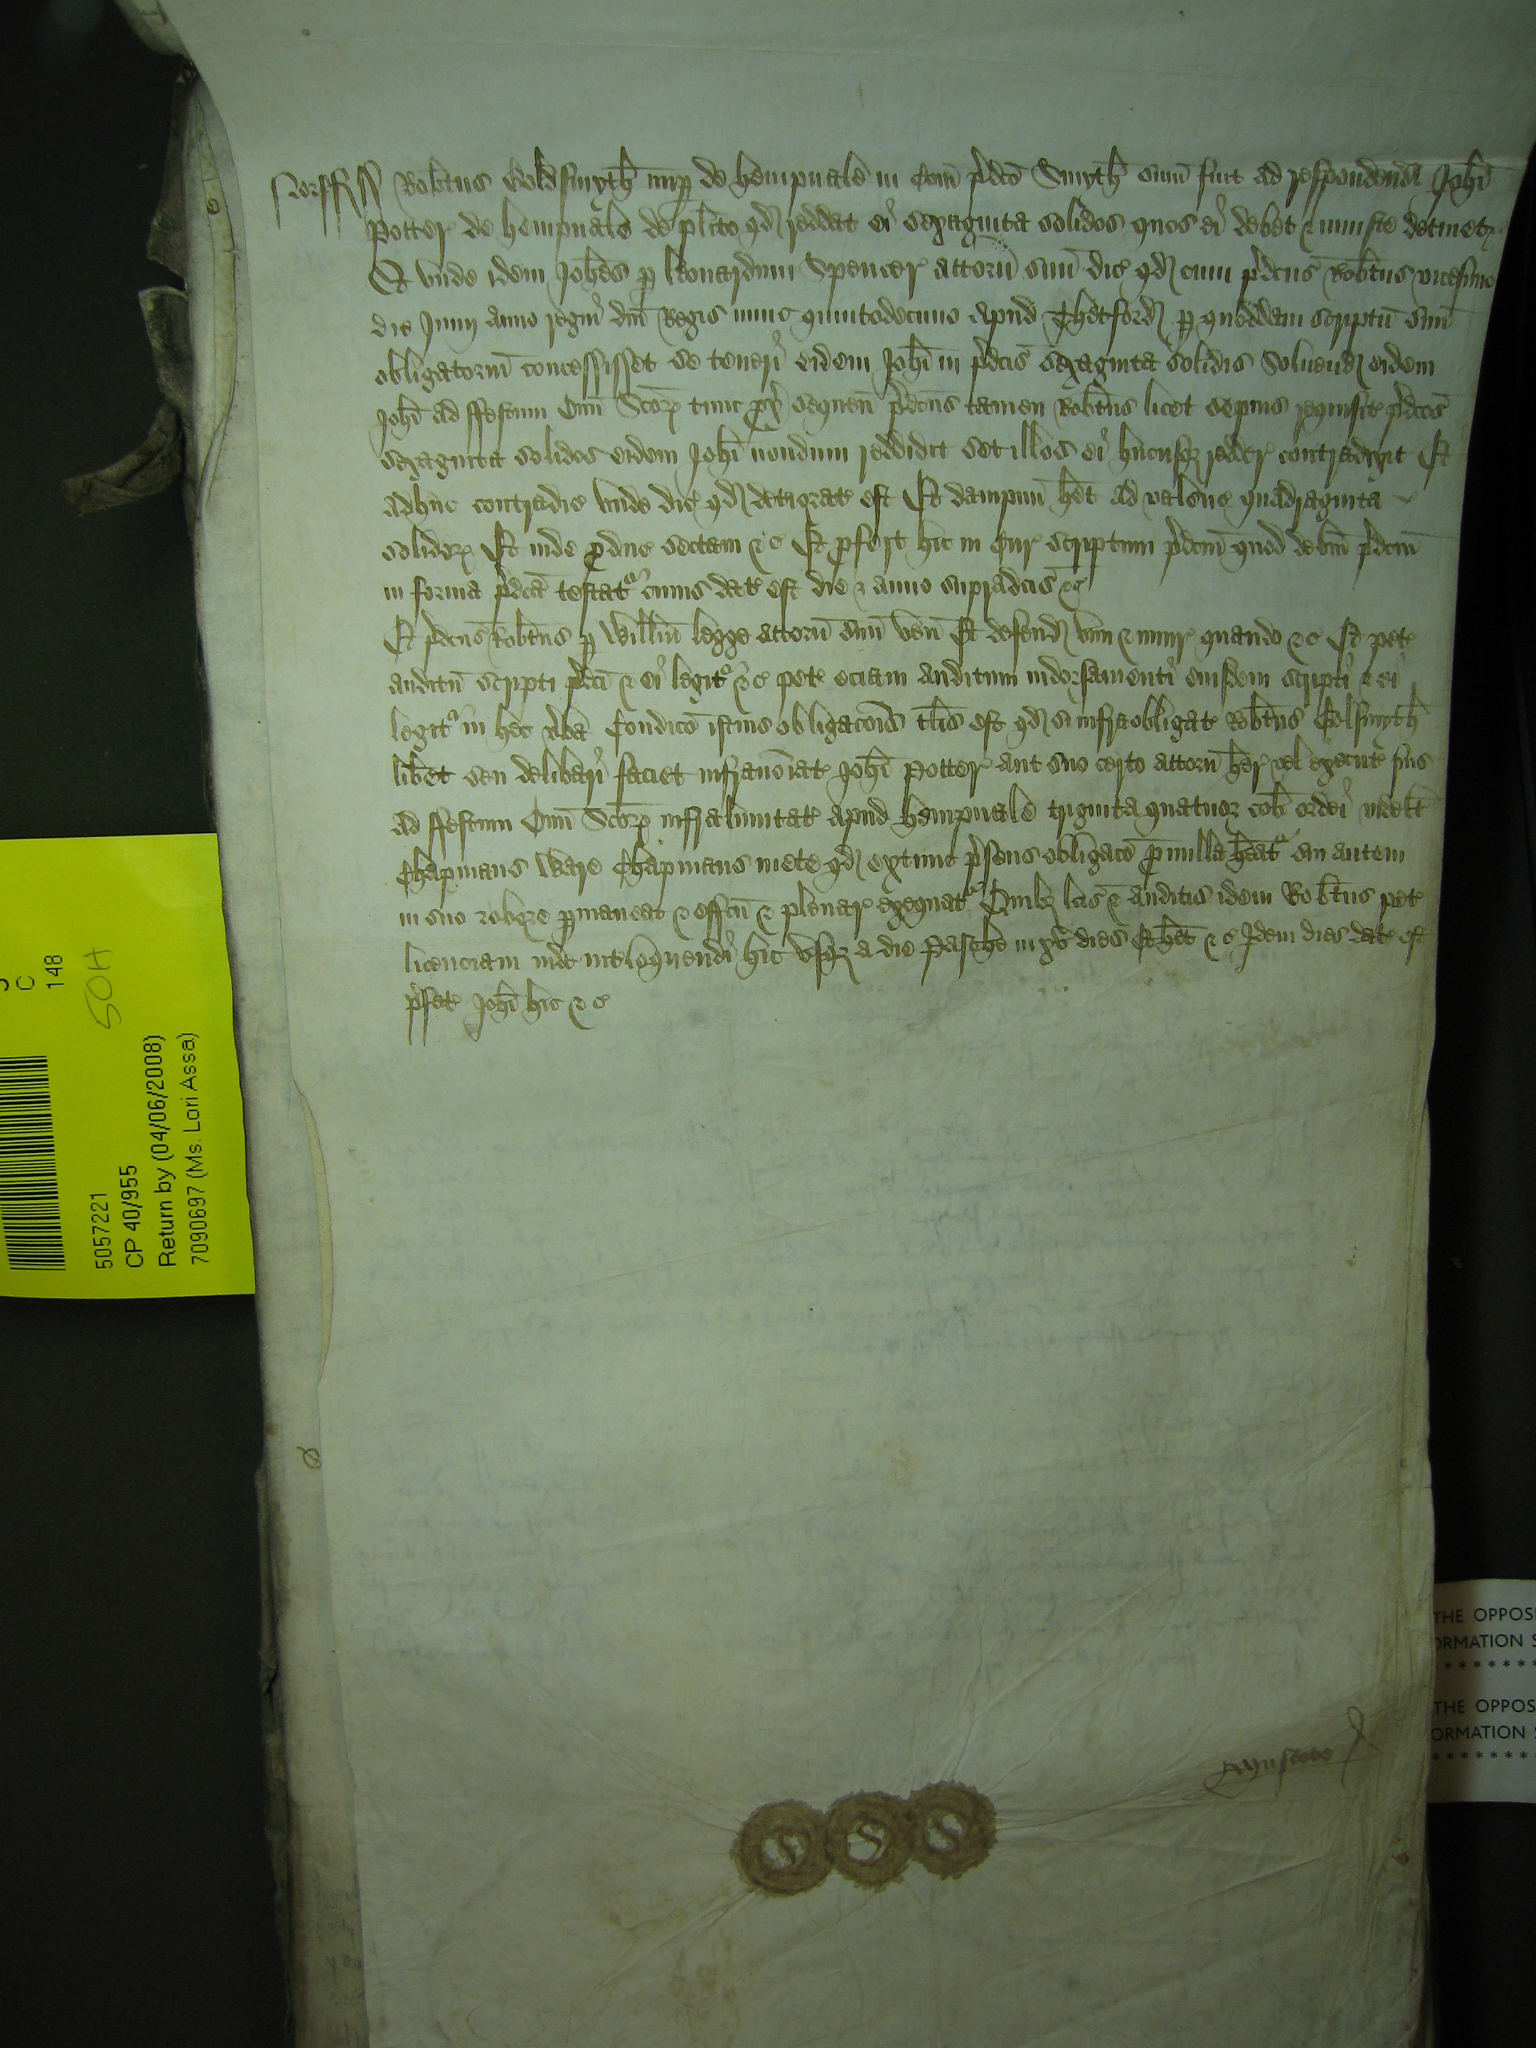 Norff ss Robtus Coldsmyth nup de Hempnale in Com pdco Smyth sum fuit ad respondend Johi
Potter de Hempnale de plito qd reddat ei sexaginta solidos quos ei debet & iniuste detinet
Et unde idem Johes p Leonardum Spencer attorn suu dic qd cum pdcus Robtus vicesimo
die Junii anno regni dni Regis nunc quintodecimo apud Thetford p quoddam scriptu suu
obligatoriu concessisset se teneri eidem Johi in pdcis sexaginta solidis Solvend eidem
Johi ad ffestum Omi Scorp tunc px sequen pdcus tamen Robtus licet sepius requisit pdcos
sexaginta solidos eidem Johi nondum reddidit set illos ei hucusq redder contradixit Et
adhuc contradic unde dic qd deteriorat est Et dampnu het ad valenc quadraginta
solidorp Et inde pduc sectam &c Et pfert hic in Cur scriptum pdcm quod debm pdcm
in forma pdca testat cuius dat est die & anno supradcis &c
Et pdcus Robtus p Willm Legge attorn suu ven Et defend vim & iniur quando &c Et pet
auditu scripti pdci & ei legit &c pet eciam auditum indorsamenti eiusdem scripti & ei
legit in hec vba Condico istius obligacois tlis est qd si infraobligat Robtus Colsmyth
libet seu delibari faciet infranoiat Johi Potter aut suo certo attorn her vel execut suis
ad ffestum Omi Scorp infralimitat apud Hempnale triginta quatuor cob ordei
Chapmans Ware Chapmans mete qd extunc psens obligaco p nulla heat sin autem
in suo robore pmaneat & effcu & plenar exequat Quibz lcis & auditis idem Robtus pet
licenciam inde intloquendi hic usqz a die Pasche in xv dies Et het &c Idem dies dat est
pfat Johi hic &c
Muscote
S S S
C
148
SOH
5057221
CP 40/955
Return by (04/06/2008)
7090697 (Ms. Lori Assa)
THE OPPOS
ORMATION S
* * * * * * *
THE OPPOS
ORMATION S
* * * * * * *